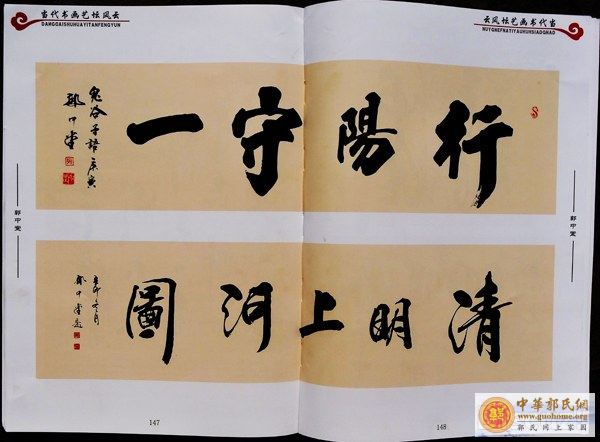 当代书画艺坛风云
DANGDAISHUHUAYITANFENGYUN
云风坛艺画书代当
NUYGNEFNATIYAUHUHSIADGNAD
行陽守一
鬼谷子語 庚寅
郭中堂
清明上河圖
郭中堂題
郭中堂
郭中堂
147
148
中華郭氏網
www.guohome.org
郭氏网上家园